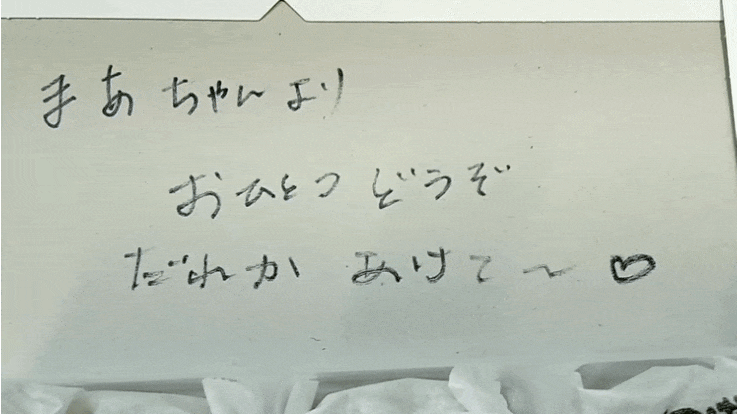 まあちゃんより
おひとつどうぞ
だれか あけて〜♡